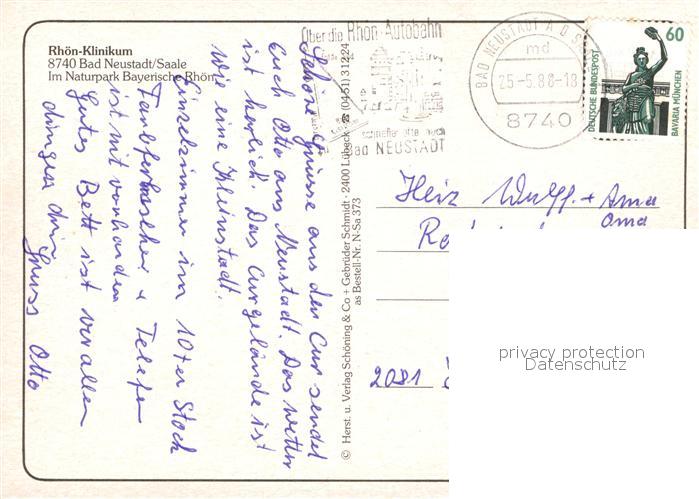 Rhön-Klinikum
8740 Bad Neustadt/Saale
Im Naturpark Bayerische Rhön
Schöne Grüsse aus den Cur sendet
Euch Otto aus Neustadt. Das wetter
ist herlich. Das Curgelände ist
wie eine Kleinstadt.
Einzelzimmer im 10ter Stock
Farbfernseher + Telefon
ist mit vorhanden
Gutes Bett ist vor allen
dingen drin
Gruss Otto
© Herst. u. Verlag Schöning & Co + Gebrüder Schmidt · 2400 Lübeck · ☎ (04 51) 3 12 24
as Bestell-Nr. N-Sa 373
Über die Rhön-Autobahn
schneller
nach
Bad NEUSTADT
BAD NEUSTADT A D S
md
25.-5.88-18
8740
60
DEUTSCHE BUNDESPOST
BAVARIA MÜNCHEN
Heiz Wulff +
Oma
2081
privacy protection
Datenschutz